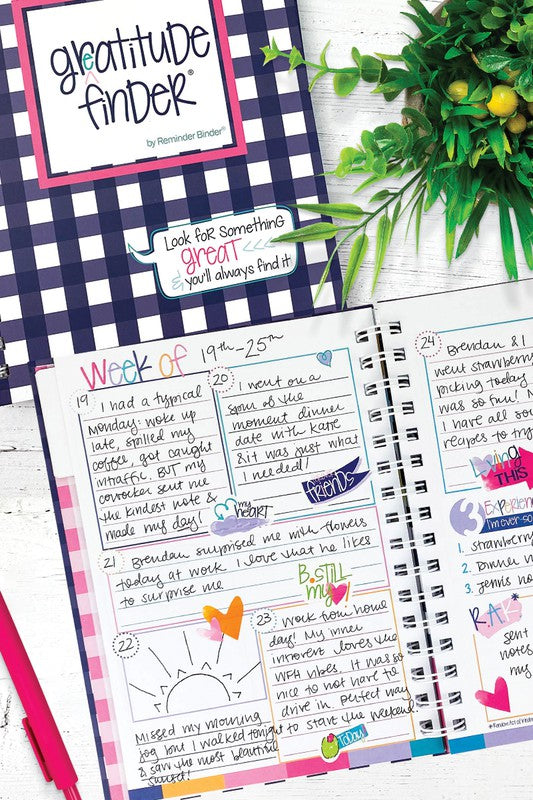 greatitude
finder®
by Reminder Binder®
Look for something
great
& you'll always find it
Week of 19th-25th
19
I had a typical
Monday: woke up
late, spilled my
coffee, got caught
in traffic. BUT my
coworker sent me
the kindest note &
made my day!
my
heart
20
I went on a
spur of the
moment dinner
date with Katie
& it was just what
I needed!
friends
21
Brendan surprised me with flowers
today at work. I love that he likes
to surprise me
B.Still
my
22
Missed my morning
jog, but I walked tonight
& saw the most beautiful
sunset!
23
Work from home
day! My inner
introvert loves the
WFH vibes. It was so
nice to not have to
drive in. Perfect way
to start the weekend!
Today
24
Brendan & I
went strawberry
picking today
was so fun!
I have all so
recipes to try
loving
THIS
3 Experien
I'm ever-so
1. Strawberry
2.
3.
RAK*
sent
notes
my